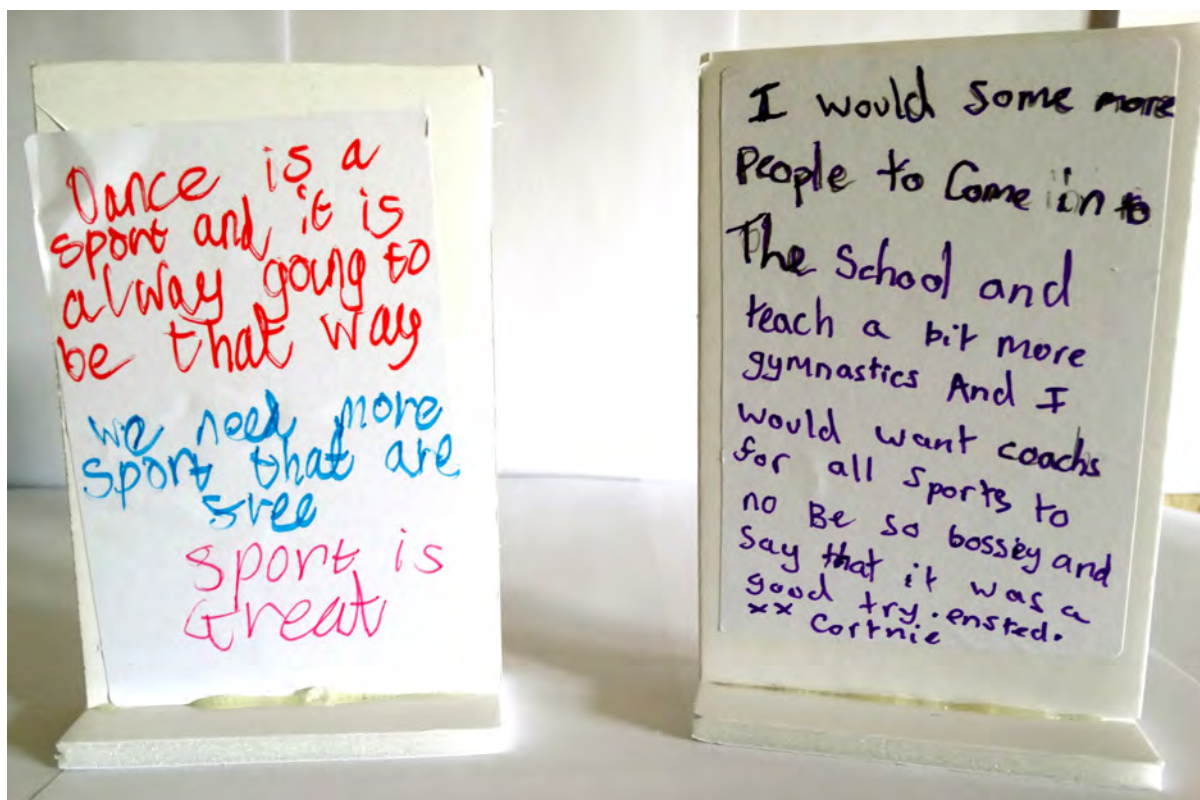 Dance is a
sport and it is
alway going to
be that way
we need more
sport that are
free
sport is
Great
I would some more
People to Come in to
The School and
teach a bit more
gymnastics And I
would want coachs
for all sports to
no Be so bossey and
say that it was a
good try. ensted.
xx Cortnie